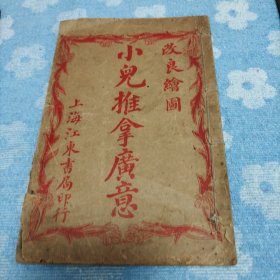 改良繪圖
小兒推拿廣意
上海江東書局印行